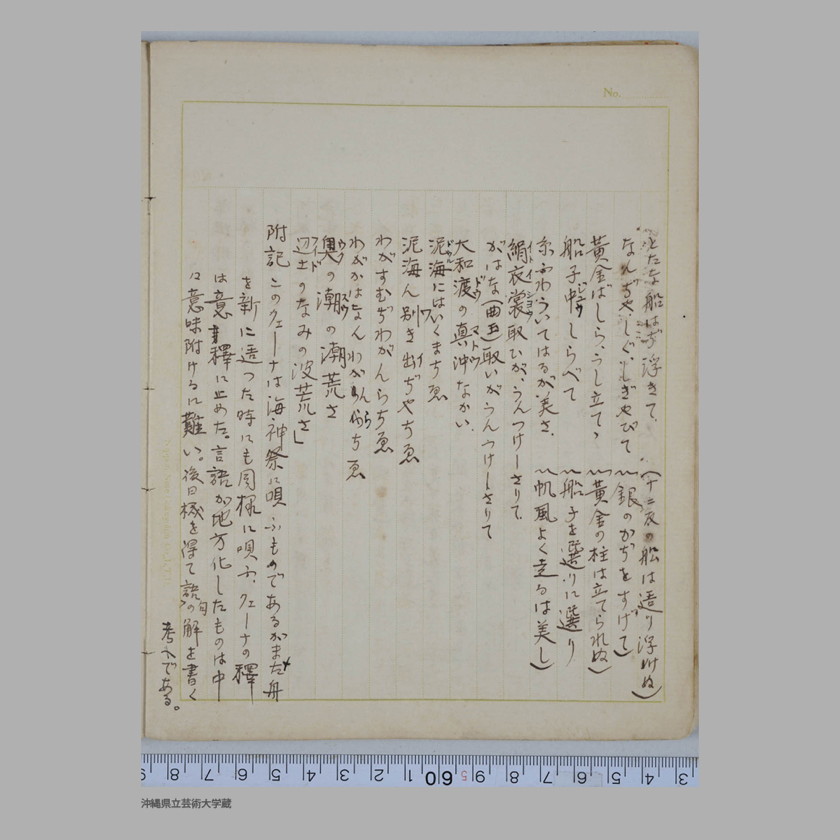 No.
とたな船はぢ浮きて、 (十二反の船は造り浮けぬ)
なんぢややしぐしぎやびて 〃銀のかぢをすげて)
黄金ばしら、うし立て、 〃黄金の柱は立てられぬ)
船子帳しらべて 〃船子を選りに選り
糸ふわういてはるが美さ、 〃帆風よく走るは美し)
絹衣裳取ひが、うんつけーさりて、
がはな(曲玉)取いがうんつけーさりて
大和渡の真沖なかい、
泥海にはいくまちゑ
泥海ん別き出ぢやちゑ
わがすむぢわがんらちゑ
わがかはなんわがんらちゑ
奥の潮の潮荒さ
辺土のなみの波荒さ」
附記 このクェーナは海神祭に唄ふものであるがまた舟
を新に造つた時にも同様に唄ふ、クェーナの釋
は意釋に止めた。言語が地方化したものは中
々意味附けるに難い。後日機を得て語句の解を書く
考へである。
3 4 5 6 7 8 9 60 1 2 3 4 5 6 7 8 9
沖縄県立芸術大学蔵